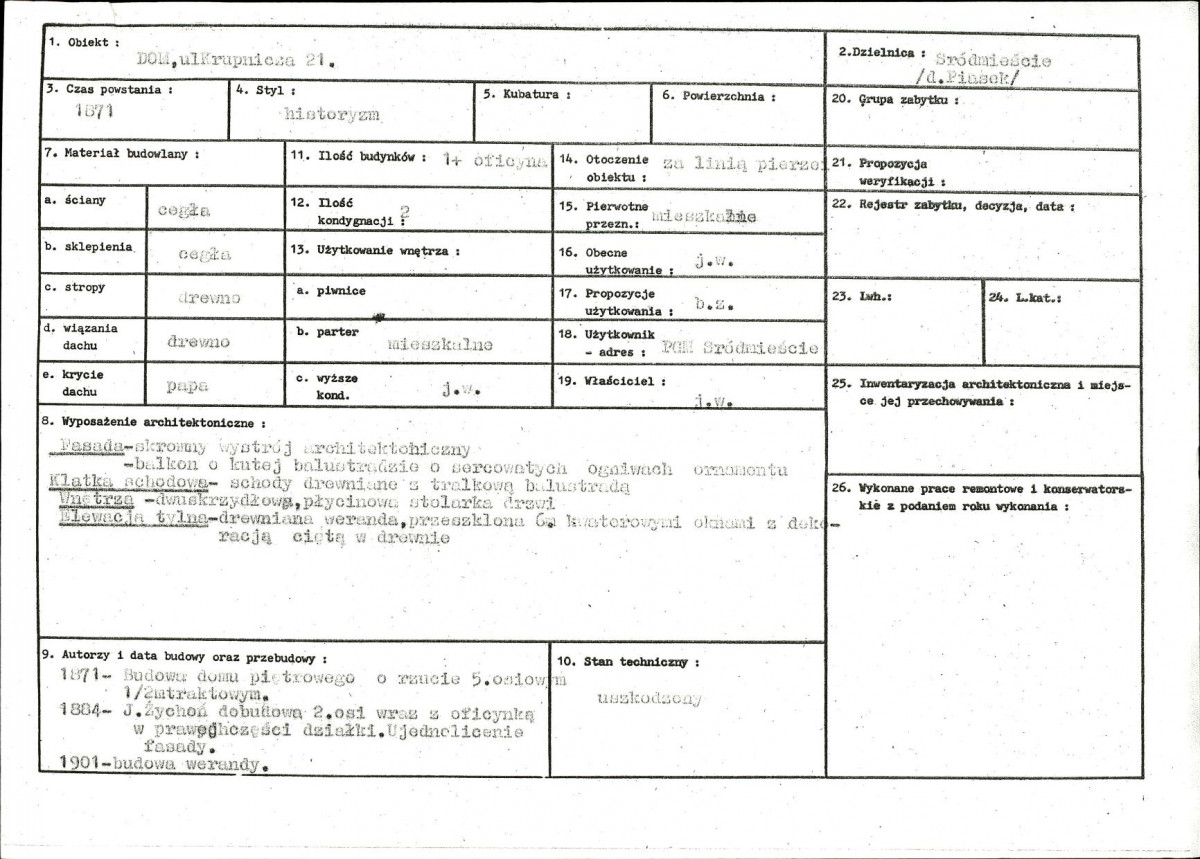 1. Obiekt :
DOM,ulKrupnicza 21.
2.Dzielnica : Sródmieście
/d.Piasek/
3. Czas powstania :
1871
4. Styl :
historyzm
5. Kubatura :
6. Powierzchnia :
20. Grupa zabytku :
7. Materiał budowlany :
11. Ilość budynków : 1+ oficyna
14. Otoczenie
obiektu :
za linią pierzei
21. Propozycja
weryfikacji :
a. ściany
cegła
12. Ilość
kondygnacji :
2
15. Pierwotne
przezn.:
mieszkalne
22. Rejestr zabytku, decyzja, data :
b. sklepienia
cegła
13. Użytkowanie wnętrza :
16. Obecne
użytkowanie :
j.w.
c. stropy
drewno
a. piwnice
17. Propozycje
użytkowania :
b.z.
23. Lwh.:
24. L.kat.:
d. wiązania
dachu
drewno
b. parter
mieszkalne
18. Użytkownik
- adres :
PGM Sródmieście
e. krycie
dachu
papa
c. wyższe
kond.
j.w.
19. Właściciel :
j.w.
25. Inwentaryzacja architektoniczna i miejs-
ce jej przechowywania :
8. Wyposażenie architektoniczne :
Fasada-skromny wystrój architektohiczny
-balkon o kutej balustradzie o sercowatych ogniwach ornamentu
Klatka schodowa- schody drewniane z tralkową balustradą
Wnętrza -dwuskrzydłowa,płycinowa stolarka drzwi
Elewacja tylna-drewniana weranda,przeszklona 6. kwaterowymi oknami z deko-
racją ciętą w drewnie
26. Wykonane prace remontowe i konserwators-
kie z podaniem roku wykonania :
9. Autorzy i data budowy oraz przebudowy :
1871- Budowa domu piętrowego o rzucie 5.osiowym
1/2mtraktowym.
1884- J.Żychoń dobudowa 2.osi wraz z oficynką
w części działki.Ujednolicenie
fasady.
1901-budowa werandy.
10. Stan techniczny :
uszkodzony